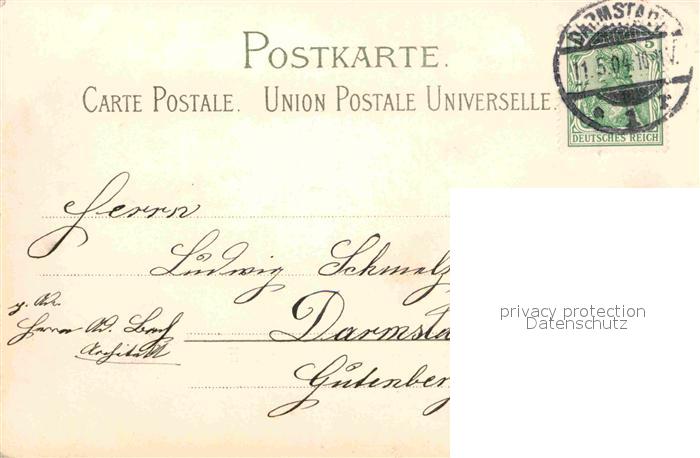 POSTKARTE.
CARTE POSTALE. UNION POSTALE UNIVERSELLE.
DARMSTADT
5
11.5.04
1
DEUTSCHES REICH
Herrn
Ludwig Schmelz
Herrn Ad.
Architekt
Darmsta
Gutenber
privacy protection
Datenschutz